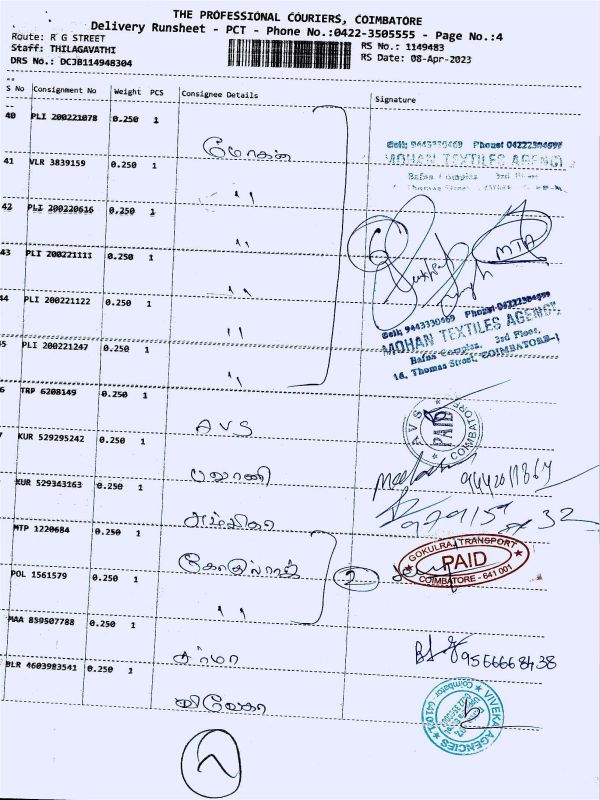 THE PROFESSIONAL COURIERS, COIMBATORE
Delivery Runsheet - PCT - Phone No.:0422-3505555 - Page No.:4
Route: R G STREET
Staff: THILAGAVATHI
DRS No.: DCJB114948304
RS No.: 1149483
RS Date: 08-Apr-2023
S No Consignment No Weight PCS Consignee Details Signature
40 PLI 200221078 0.250 1 மோகன்
Cell: 9443330469 Phone: 04222304699
MOHAN TEXTILES AGENCY
41 VLR 3839159 0.250 1 "
Bafna Complex 3rd Floor
Thomas Street
42 PLI 200220616 0.250 1 "
6
MTA
43 PLI 200221111 0.250 1 "
44 PLI 200221122 0.250 1 "
Cell: 9443330469 Phone: 04222304699
MOHAN TEXTILES AGENCY
Bafna Complex, 3rd Floor,
16, Thomas Street, COIMBATORE-1
45 PLI 200221247 0.250 1 "
6 TRP 6208149 0.250 1 AVS
AVS PAID COIMBATORE
7 KUR 529295242 0.250 1 பழானி
KUR 529343163 0.250 1
MTP 1220684 0.250 1 கோகுல்ராஜ்
2
GOKULRAJ TRANSPORT
PAID
COIMBATORE - 641 001
POL 1561579 0.250 1 "
MAA 859507788 0.250 1 சர்மா
9566668438
BLR 4603983541 0.250 1 விவேகா
VIVEKA AGENCIES
Coimbatore - 641001